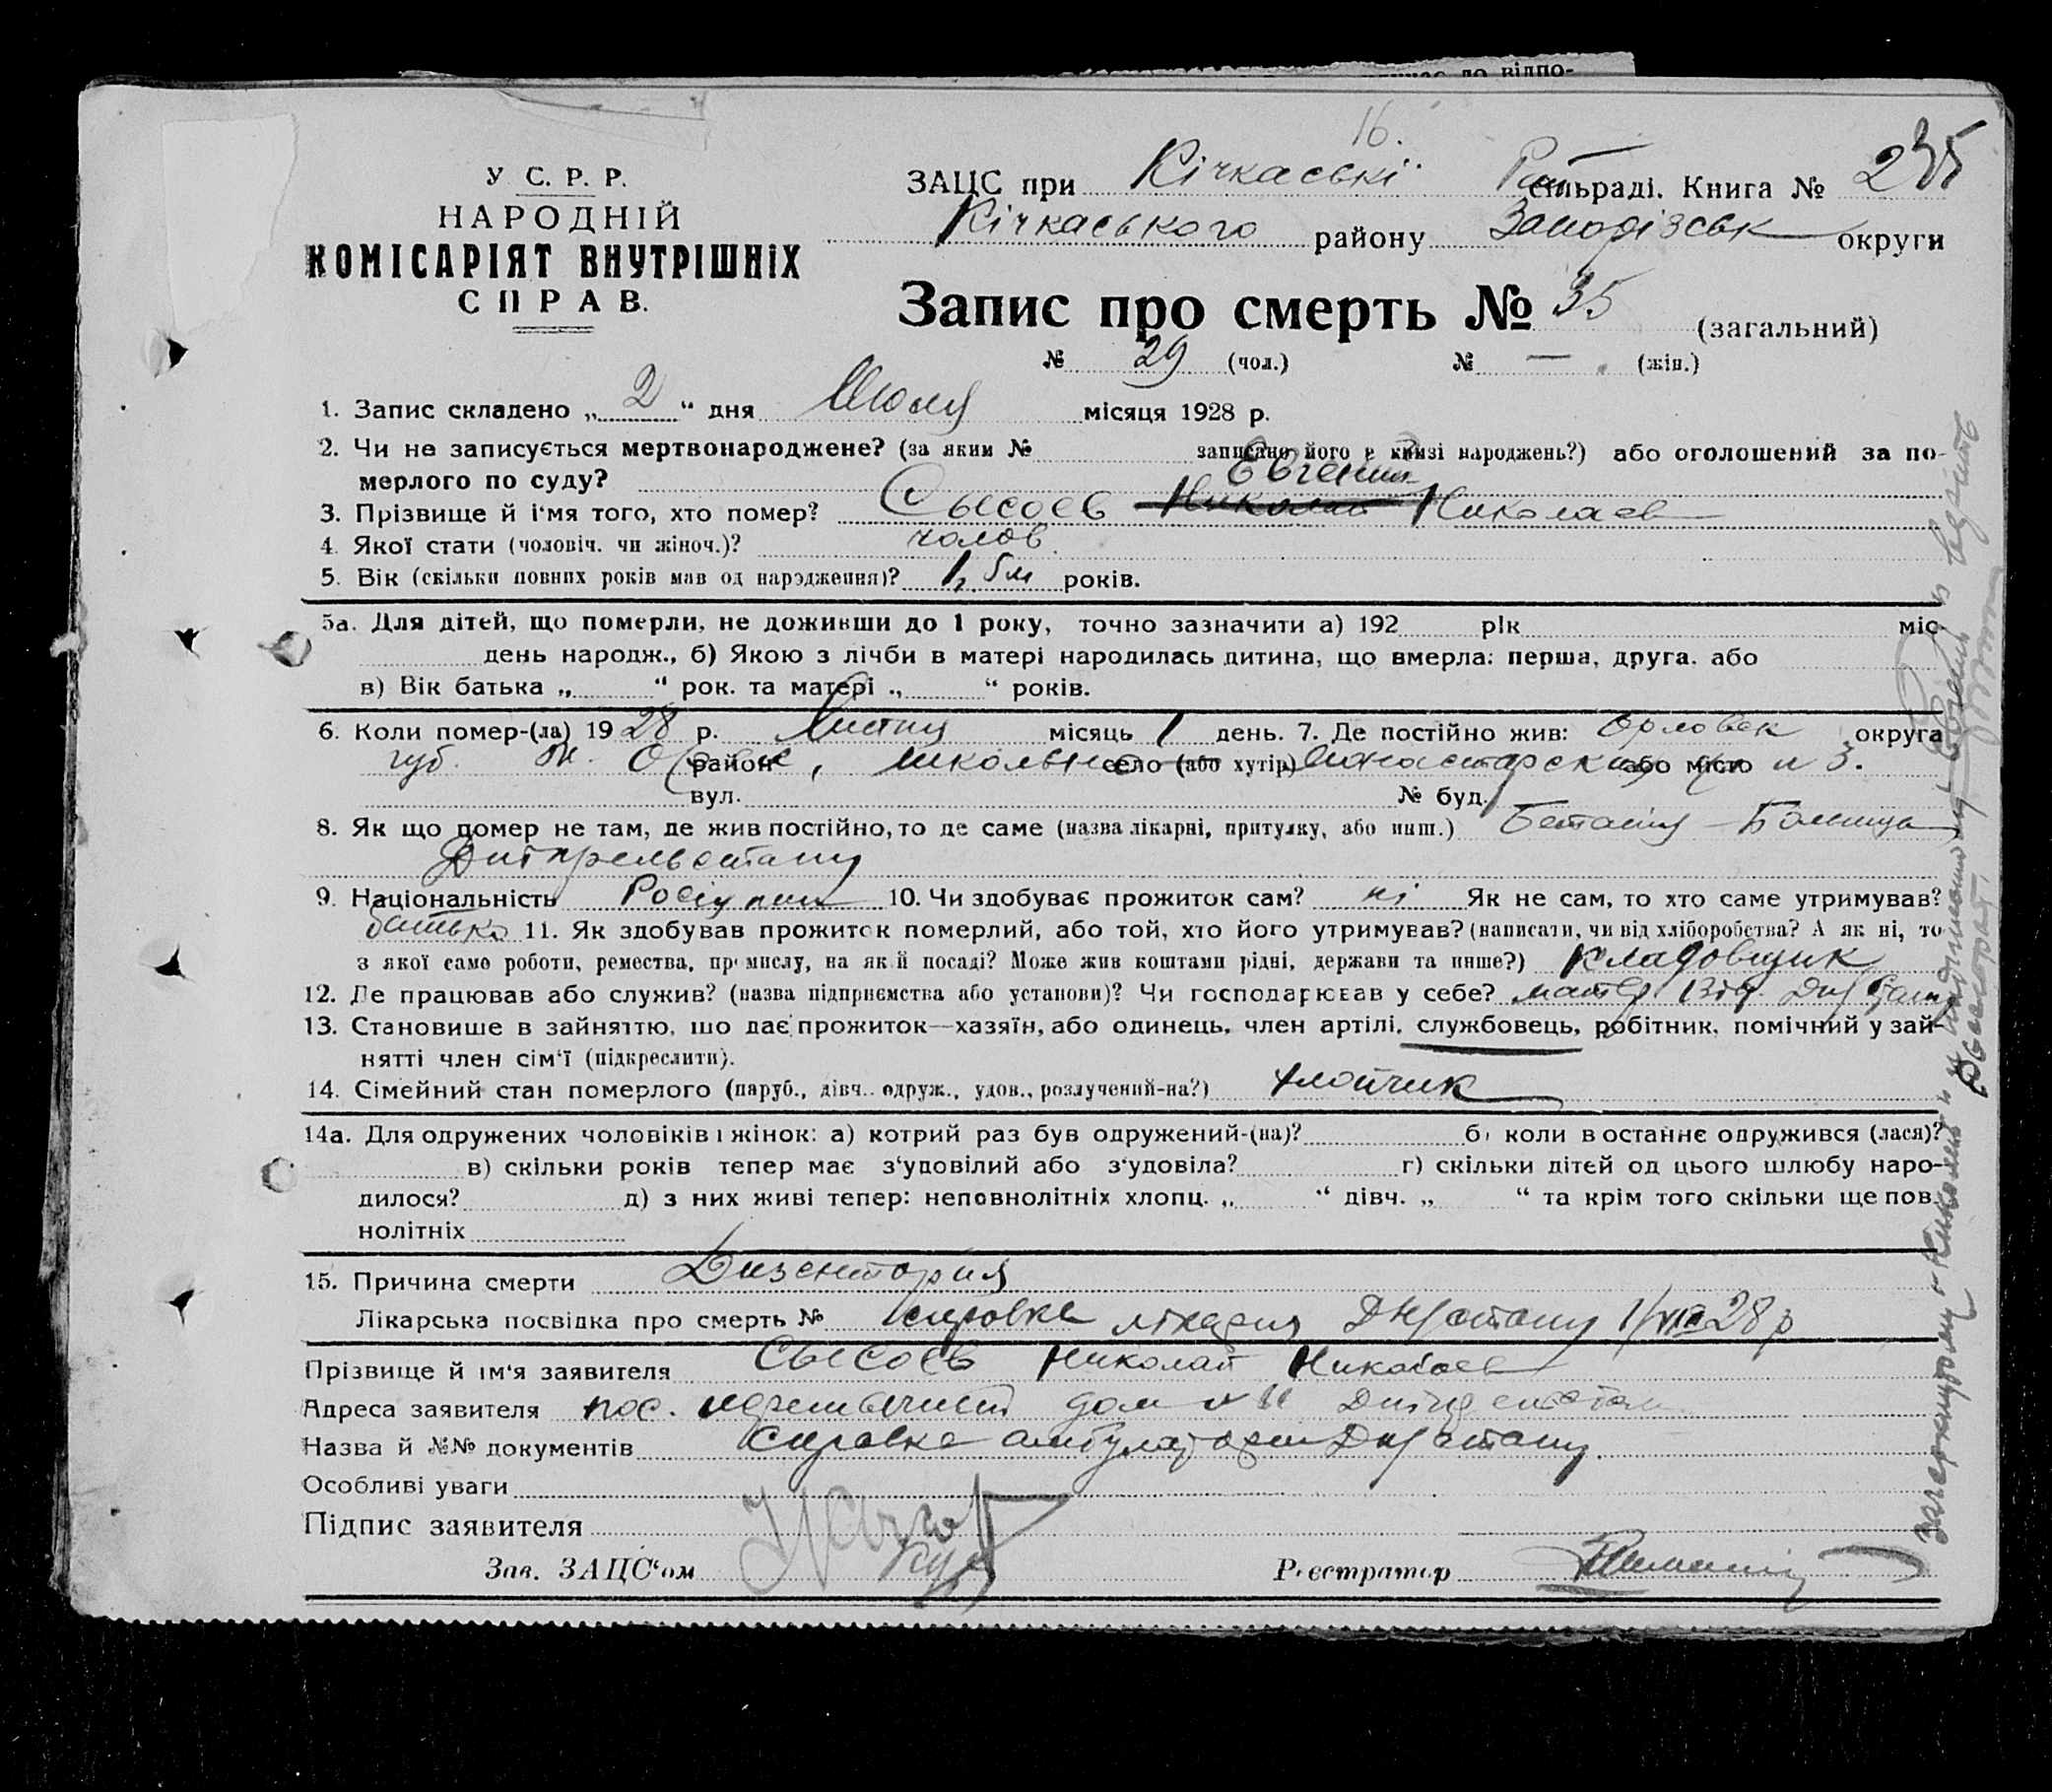 до відпо-
16.
У С. Р. Р.
НАРОДНІЙ
КОМІСАРІЯТ ВНУТРІШНІХ
СПРАВ.
ЗАЦС при Кічкаські сільраді. Книга №
Кічкаського району Запорізськ округи
Запис про смерть № 35 (загальний)
№ 29 (чол.) № — (жін.)
1. Запис складено „ 2 “ дня Июля місяця 1928 р.
2. Чи не записується мертвонароджене? (за яким № записано його в книзі народжень?) або оголошений за по-
мерлого по суду?
Євгений
3. Прізвище й і‘мя того, хто помер? Сысоєв Николай Николаев
4. Якої стати (чоловіч. чи жіноч.)? чолов.
5. Вік (скільки повних років мав од народження)? 1, 5м років.
5а. Для дітей, що померли, не доживши до 1 року, точно зазначити а) 192 рік міс.
день народж., б) Якою з лічби в матері народилась дитина, що вмерла: перша, друга, або
в) Вік батька „ “ рок. та матері „ “ років.
6. Коли помер-(ла) 1928 р. Липня місяць 1 день. 7. Де постійно жив: Орловск округа
губ. район село (або хутір) або місто № 3.
вул. № буд.
8. Як що помер не там, де жив постійно, то де саме (назва лікарні, притулку, або инш.)
Дніпрельстану
9. Національність 10. Чи здобуває прожиток сам? ні Як не сам, то хто саме утримував?
батько 11. Як здобував прожиток померлий, або той, хто його утримував? (написати, чи від хліборобства? А як ні, то
з якої само роботи, ремества, промислу, на якій посаді? Може жив коштами рідні, держави та инше?) Кладовщик
12. Де працював або служив? (назва підприємства або установи)? Чи господарював у себе?
13. Становише в зайняттю, шо дає прожиток—хазяїн, або одинець, член артілі, службовець, робітник, помічний у зай-
нятті член сім‘ї (підкреслити).
14. Сімейний стан померлого (паруб., дівч., одруж., удов., розлучений-на?) хлопчик
14а. Для одружених чоловіків і жінок: а) котрий раз був одружений-(на)? б) коли в останнє одружився (лася)?
в) скільки років тепер має з‘удовілий або з‘удовіла? г) скільки дітей од цього шлюбу наро-
дилося? д) з них живі тепер: неповнолітніх хлопц. „ “ дівч. „ “ та крім того скільки ще пов.
нолітніх
15. Причина смерти Дизентория
Лікарська посвідка про смерть № справка 28 р
Прізвище й ім‘я заявителя Сысоєв Николай Николаев
Адреса заявителя пос. дом №
Назва й №№ документів Справка
Особливі уваги
Підпис заявителя
Зав. ЗАЦС‘ом
Реєстратор